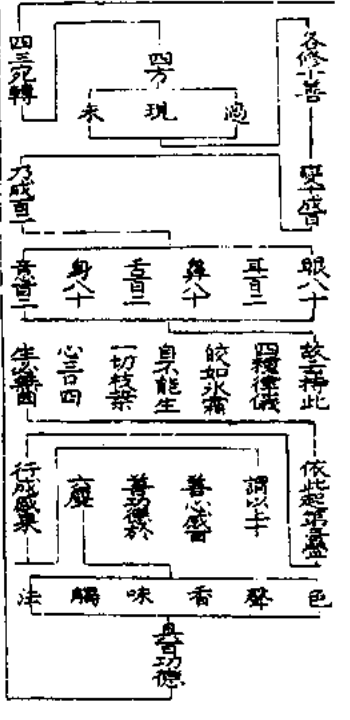 各修十善
四方
過
現
未
四三宛轉
變十成百
乃成百二
眼八十
耳百二
鼻八十
舌百二
身八十
意百二
故云持此
四種律儀
皎如氷霜
自不能生
一切枝葉
心三口四
生必無因
依此起第三疊
謂以上十
善心感百
善功德於
六塵
行成感果
色
聲
香
味
觸
法
具百功德